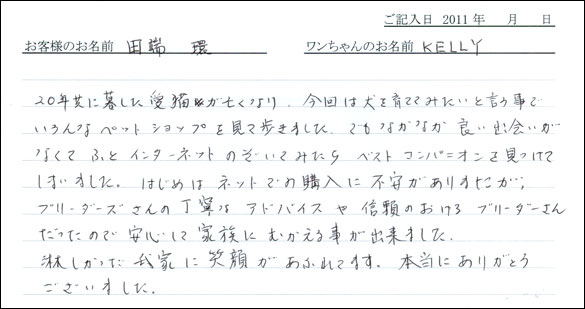 ご記入日 2011 年 月 日
お客様のお名前 田端 環 ワンちゃんのお名前 KELLY
20年共に暮した愛猫が亡くなり、今回は犬を育ててみたいと言う事で
いろんなペットショップを見て歩きました。でもなかなか良い出会いが
なくて ふと インターネットのぞいてみたら ベストコンパニオンを見つけて
しまいました。はじめはネットでの購入に不安がありましたが、
ブリーダーズさんの丁寧なアドバイスや信頼のおけるブリーダーさん
だったので安心して家族にむかえる事が出来ました。
淋しかった我家に笑顔があふれてます。本当にありがとう
ございました。